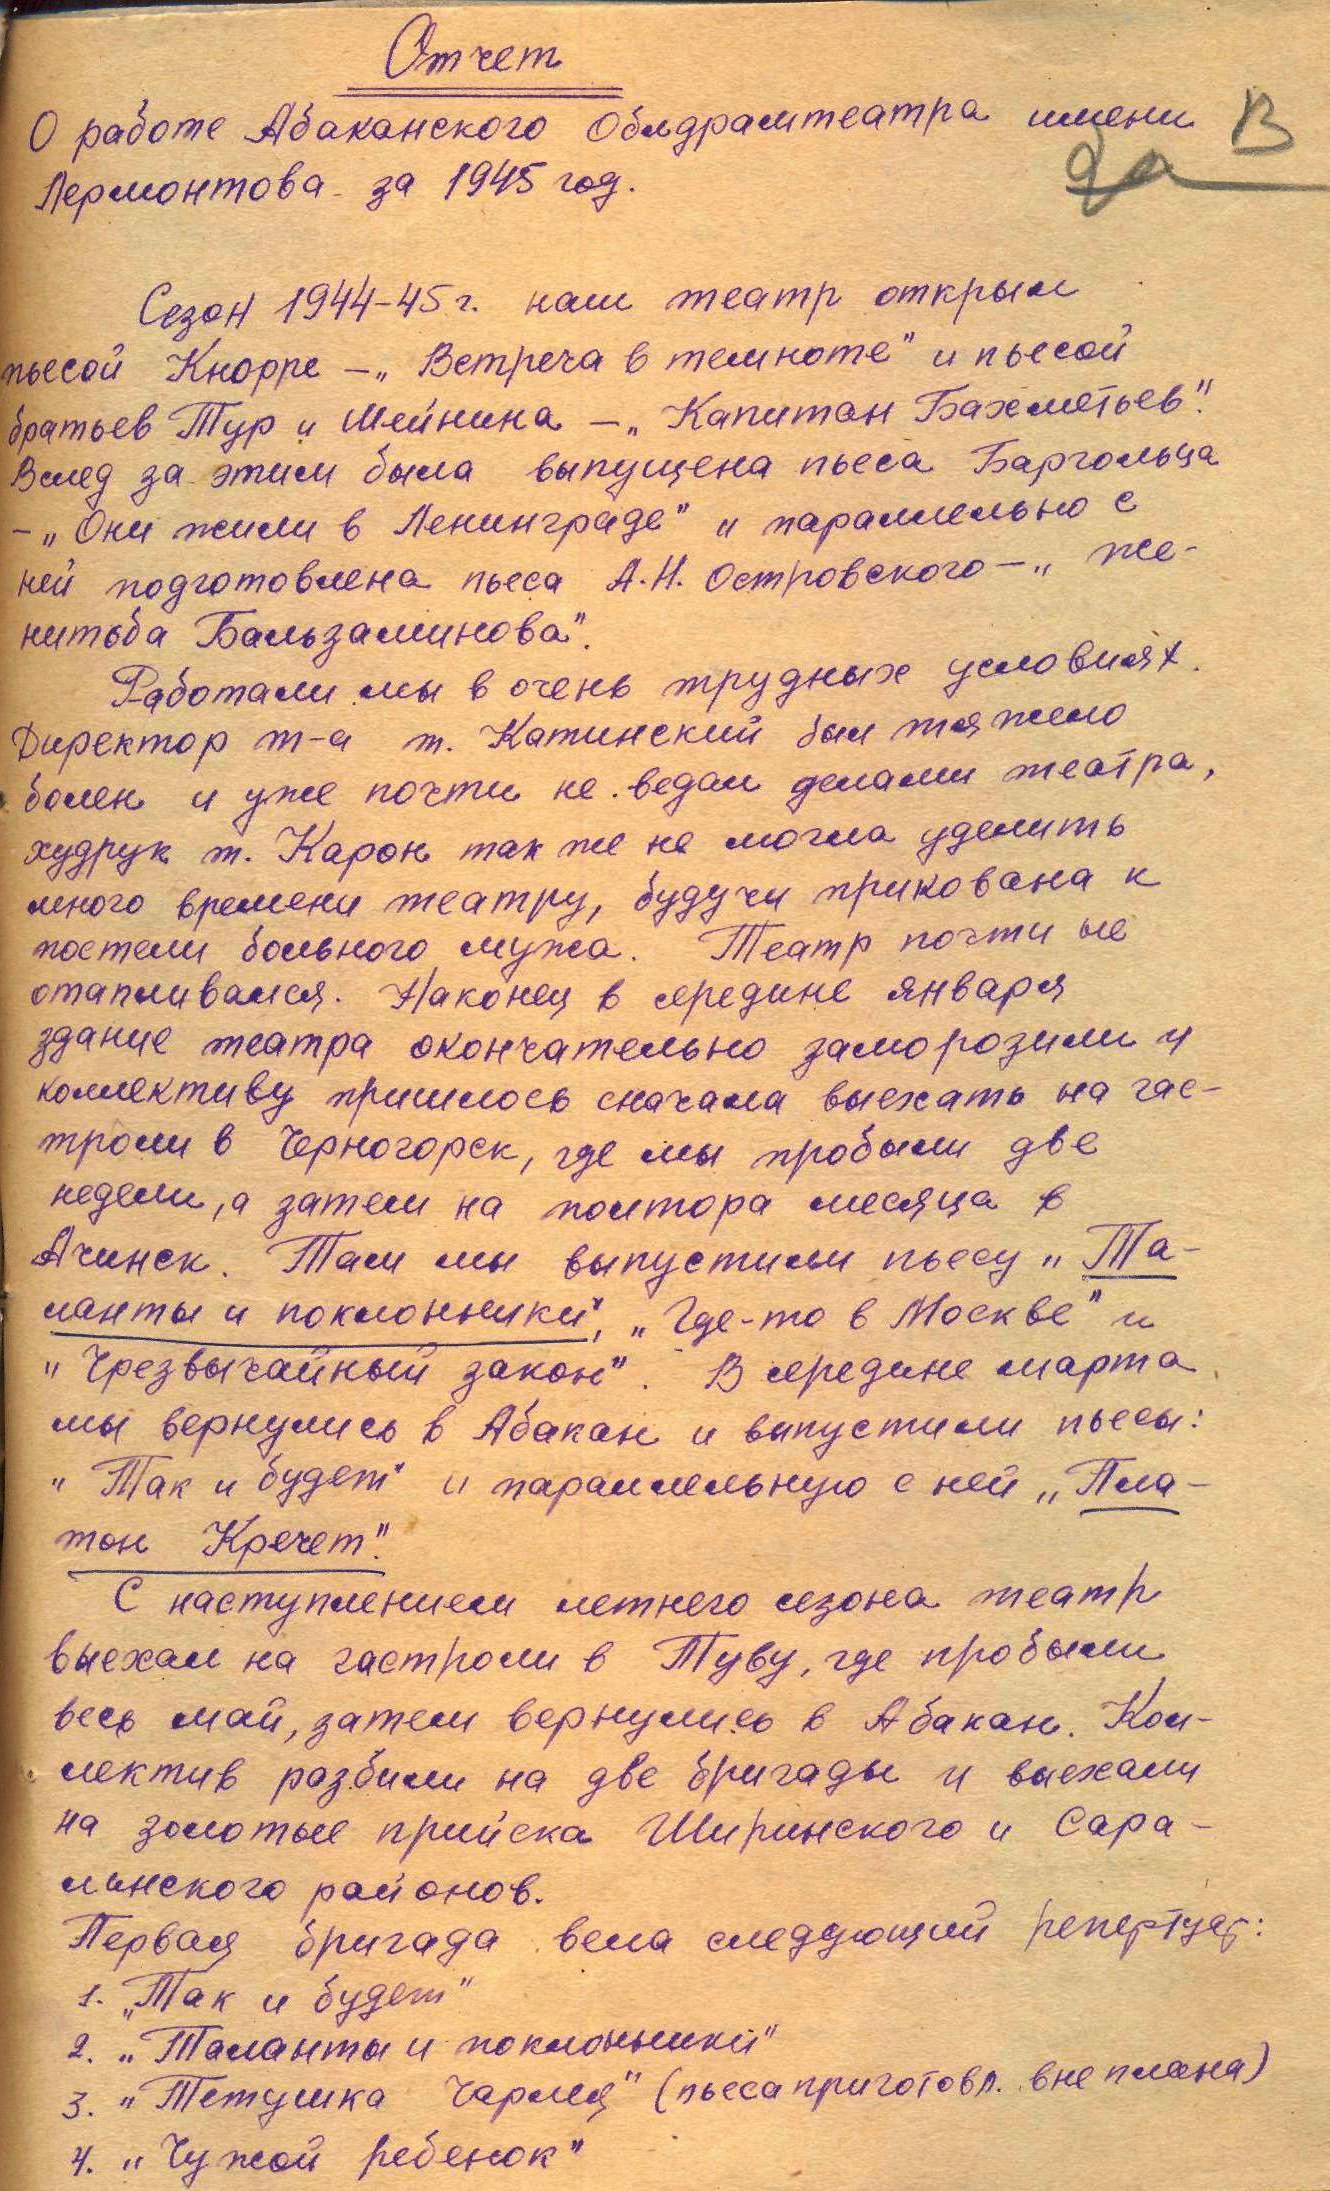 Отчет
О работе Абаканского Облдрамтеатра имени
Лермонтова за 1945 год.
В
Сезон 1944-45 г. наш театр открыл
пьесой Кнорре – „Встреча в темноте" и пьесой
братьев Тур и Шейнина – „Капитан Бахметьев".
Вслед за этим была выпущена пьеса Баргольца
– „Они жили в Ленинграде" и параллельно с
ней подготовлена пьеса А.Н. Островского – „Же-
нитьба Бальзаминова".
Работали мы в очень трудных условиях.
Директор т-а т. Катинский был тяжело
болен и уже почти не ведал делами театра,
худрук т. Карон так же не могла уделить
много времени театру, будучи прикована к
постели больного мужа. Театр почти не
отапливался. Наконец в средине января
здание театра окончательно заморозили и
коллективу пришлось сначала выехать на гас-
троли в Черногорск, где мы пробыли две
недели, а затем на полтора месяца в
Ачинск. Там мы выпустили пьесу „Та-
ланты и поклонники", „Где-то в Москве" и
„Чрезвычайный закон". В средине марта
мы вернулись в Абакан и выпустили пьесы:
„Так и будет" и параллельную с ней „Пла-
тон Кречет".
С наступлением летнего сезона театр
выехал на гастроли в Туву, где пробыли
весь май, затем вернулись в Абакан. Кол-
лектив разбили на две бригады и выехали
на золотые прийска Ширинского и Сара-
линского районов.
Первая бригада вела следующий репертуар:
1. „Так и будет"
2. „Таланты и поклонники"
3. „Тетушка Чарлея" (пьеса приготовл. вне плана)
4. „Чужой ребенок"